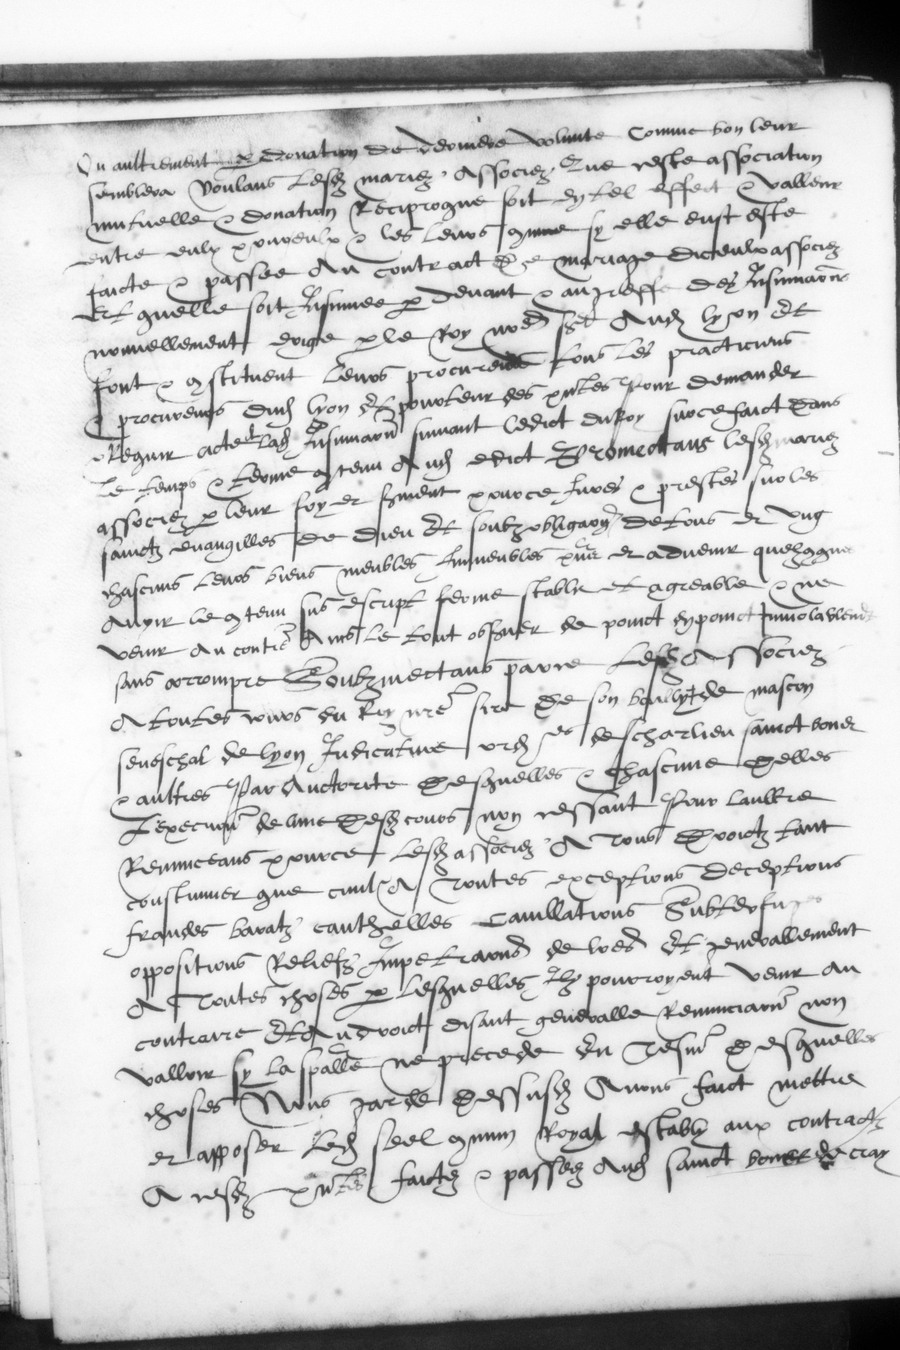 Ou aultrement par donation de derniere volunte Comme bon leur
semblera Voulans lesdz mariez Associez Que ceste association
mutuelle & donation Reciproque soit dy tel effect & valleur
entre eulx pour eulx & les leurs comme sy elle eust este
faicte & passee Au contract de mariage diceulx associez
Et quelle soit Insinuee par devant & au greffe des Insinuaons
nouvellement erige par le Roy nred sgr Aud lyon Et
font & constituent leurs procureurs tous les practiciens
& procureurs dud lyon Et pourteur des pntes pour demander
& Requir acte de lad Insinuaon suivant ledict du Roy sur ce faict dans
le temps & terme contenu Aud edict Promectans lesdz mariez
associez par leur foy et serment pource Jures & prestes sur les
sainctz evangilles de dieu Et soubz obligaon de tous et ung
chascuns leurs biens meubles Immeubles pns et advenir quelzconques
Avoir le contenu sus escript ferme stable et agreable & ne
venir Au contre Ains le tout observer de poinct en poinct Inviolablement
sans corrompre Soubzmectans par ce lesdz Associez
A toutes cours du Roy nre sire de son bailly de mascon
seneschal de lyon Judicature ord de scharlieu sainct bonet
& aultres Par Auctorite desquelles & chascune delles
Lexecution de lune desdz cours non cessant Pour laultre
Renunceans pource lesdz associez A Tous droictz tant
coustumier que civil A Toutes exceptions deceptions
fraudes baratz cauthelles Cavillations Subterfuges
oppositions Reliefz Impetraons de lres Et generallement
A Toutes choses par lesquelles Ilz pourroyent venir Au
contraire Et Au droict disant generalle Renunciaon non
valloir sy la spalle ne precede En Tesmoing desquelles
choses Nous garde dessusd Avons faict mettre
et apposer Led seel commun Royal establi aux contractz
A cesdz pntes faictes & passees Aud sainct bonet de cray